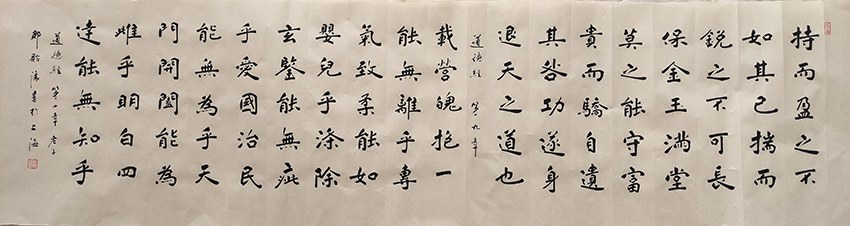 持而盈之不
如其已揣而
銳之不可長
保金玉滿堂
莫之能守富
貴而驕自遺
其咎功遂身
退天之道也
道德經 第九章
載營魄抱一
能無離乎專
氣致柔能如
嬰兒乎滌除
玄鑒能無疵
乎愛國治民
能無為乎天
門開闔能為
雌乎明白四
達能無知乎
道德經 第十章 老子
書於上海